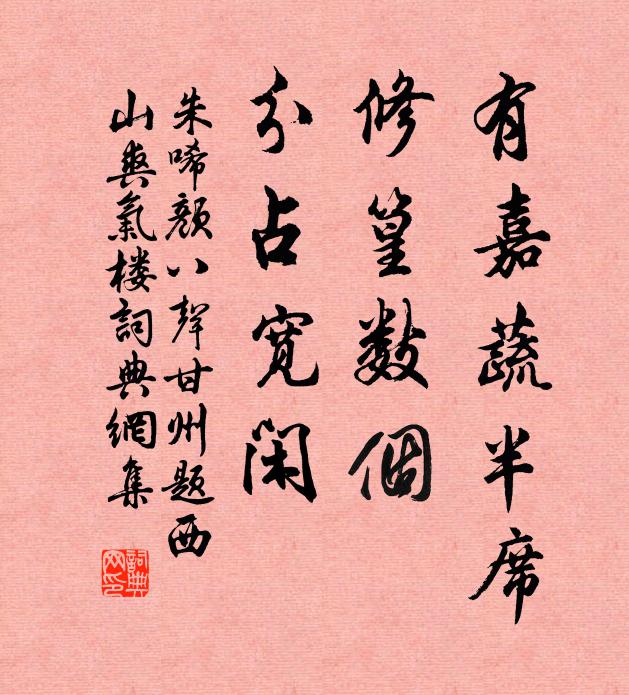 有嘉蔬半席
修篁数個
分占寬闲
朱唏颜八聲甘州题西
山爽氣楼詞典網集
詞典网印